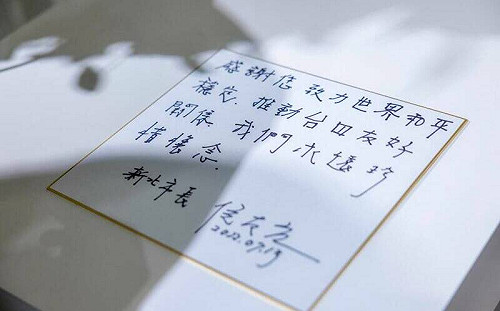 感謝您致力世界和平
穩定、推動台日友好
關係，我們永遠珍
惜懷念。
新北市長 侯友宜
2022.07.19